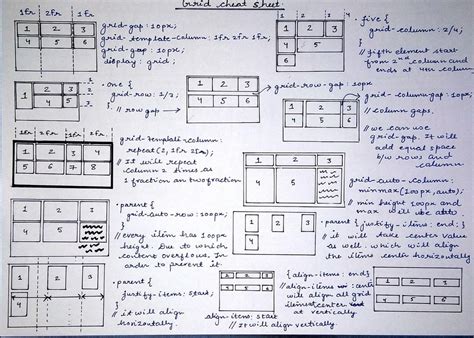 Grid cheat sheet.
1fr 2fr 1fr
1 2 3
4 5 6
grid-gap: 10px;
grid-template-column: 1fr 2fr 1fr;
grid-gap: 10px;
display: grid;
1 2 3 4
1 2 3
4 5 6
.five {
grid-column: 2/4;
}
// fifth element start
from 2nd column and
ends at 4th column
1 2 3
4 5 6
.one {
grid-row: 1/3;
}
// row gap
1 2 3
4 5 6
grid-row-gap: 10px
1 2 3
4 5 6
grid-column-gap: 10px;
// column gaps.
// we can use
grid-gap. It will
add equal space
b/w rows and
column
1fr 2fr 1fr 2fr
1 2 3 4
5 6 7 8
grid-template-column:
repeat(2, 1fr 2fr);
// It will repeat
column 2 times as
1 fraction and two fraction
1 2 3
4 5 6
grid-auto-column:
minmax(100px, auto);
// min height 100px and
max will be auto
1 2 3
4 5
.parent {
grid-auto-row: 100px;
}
// every item has 100px
height. Due to which
content overflows. In
order to prevent it.
1 2 3
.parent { justify-items: end; }
// it will take center value
as well. which will align
the items center horizontally
1 2 3
.parent {
justify-items: start;
}
// it will align
horizontally.
1 2 3
4 5 6
align-items: start;
// It will align vertically.
{ align-items: end; }
will align all grid
items center
at vertically